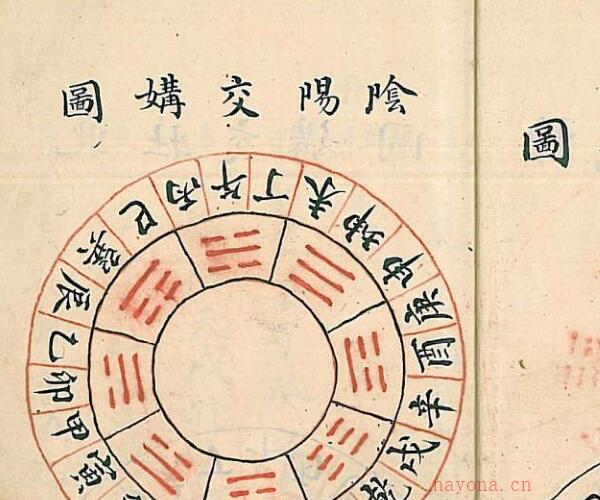 陰陽交媾圖
圖
寅甲卯乙辰巽巳丙午丁未坤申庚酉辛戌
hayona.cn